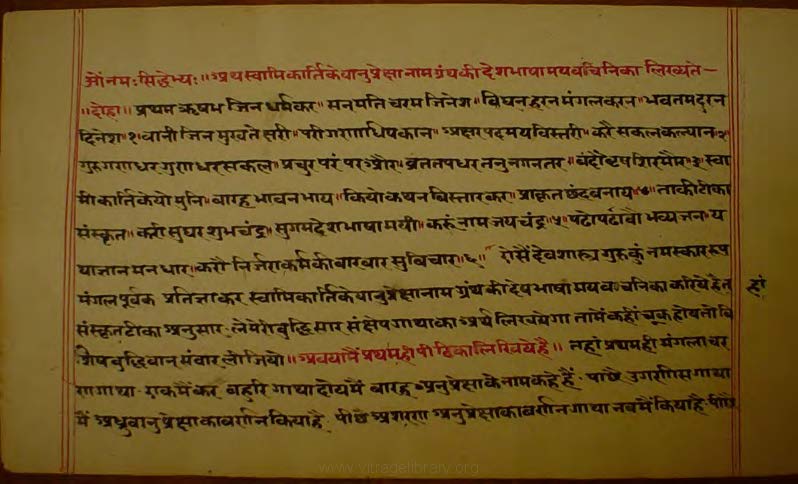 ओं नमः सिद्धेभ्यः ॥ अथ स्वामिकार्तिकेयानुप्रेक्षा नाम ग्रंथ की देशभाषामय वचनिका लिख्यते —
॥ दोहा ॥ प्रथम ऋषभ जिन धर्मकर ॥ सनमति चरम जिनेश ॥ विघन हरन मंगल करन ॥ भवतम दरन
दिनेश ॥ १ ॥ वानी जिन मुखते खरी ॥ परी गणाधिप कान ॥ अक्षर पदमय विस्तरी ॥ करै सकल कल्यान ॥ २ ॥
गुरु गणधर गुणधर सकल ॥ प्रचुर परंपर और ॥ व्रत तपधर तनु नगनतर ॥ बंदौं वृष शिरमौर ॥ ३ ॥ स्वा
मी कार्तिकेयो मुनि ॥ बारह भावन भाय ॥ कियो कथन बिस्तार कर ॥ प्राकृत छंद बनाय ॥ ४ ॥ ताकी टीका
संस्कृत ॥ करी सुघर शुभचंद्र ॥ सुगम देशभाषामयी ॥ करूं नाम जयचंद्र ॥ ५ ॥ पढो पढावौ भव्य जन ॥ य
थाज्ञान मन धार ॥ करौ निर्जरा कर्म की बार बार सुबिचार ॥ ६ ॥ ऐसें देव शास्त्र गुरु कुं नमस्कार रूप
मंगल पूर्वक प्रतिज्ञा कर स्वामिकार्तिकेयानुप्रेक्षा नाम ग्रंथ की देशभाषामय वचनिका करिये है तहां
संस्कृत टीका अनुसार ले मेरी बुद्धि सार संक्षेप गाथा का अर्थ लिखयेगा तामें कहीं चूक होय तो वि
शेष बुद्धिवान संवार लीजियो ॥ अब यामैं प्रथमही पीठिका लिखिये है ॥ तहां प्रथमही मंगलाचर
ण गाथा एक मैं कर बहुरि गाथा दोय मैं बारह अनुप्रेक्षा के नाम कहे हैं पाछै उगणीस गाथा
मैं अध्रुवानुप्रेक्षा का वर्णन किया है पीछै अशरण अनुप्रेक्षा का वर्णन गाथा नव मैं किया है पीछै
www.vitragelibrary.org